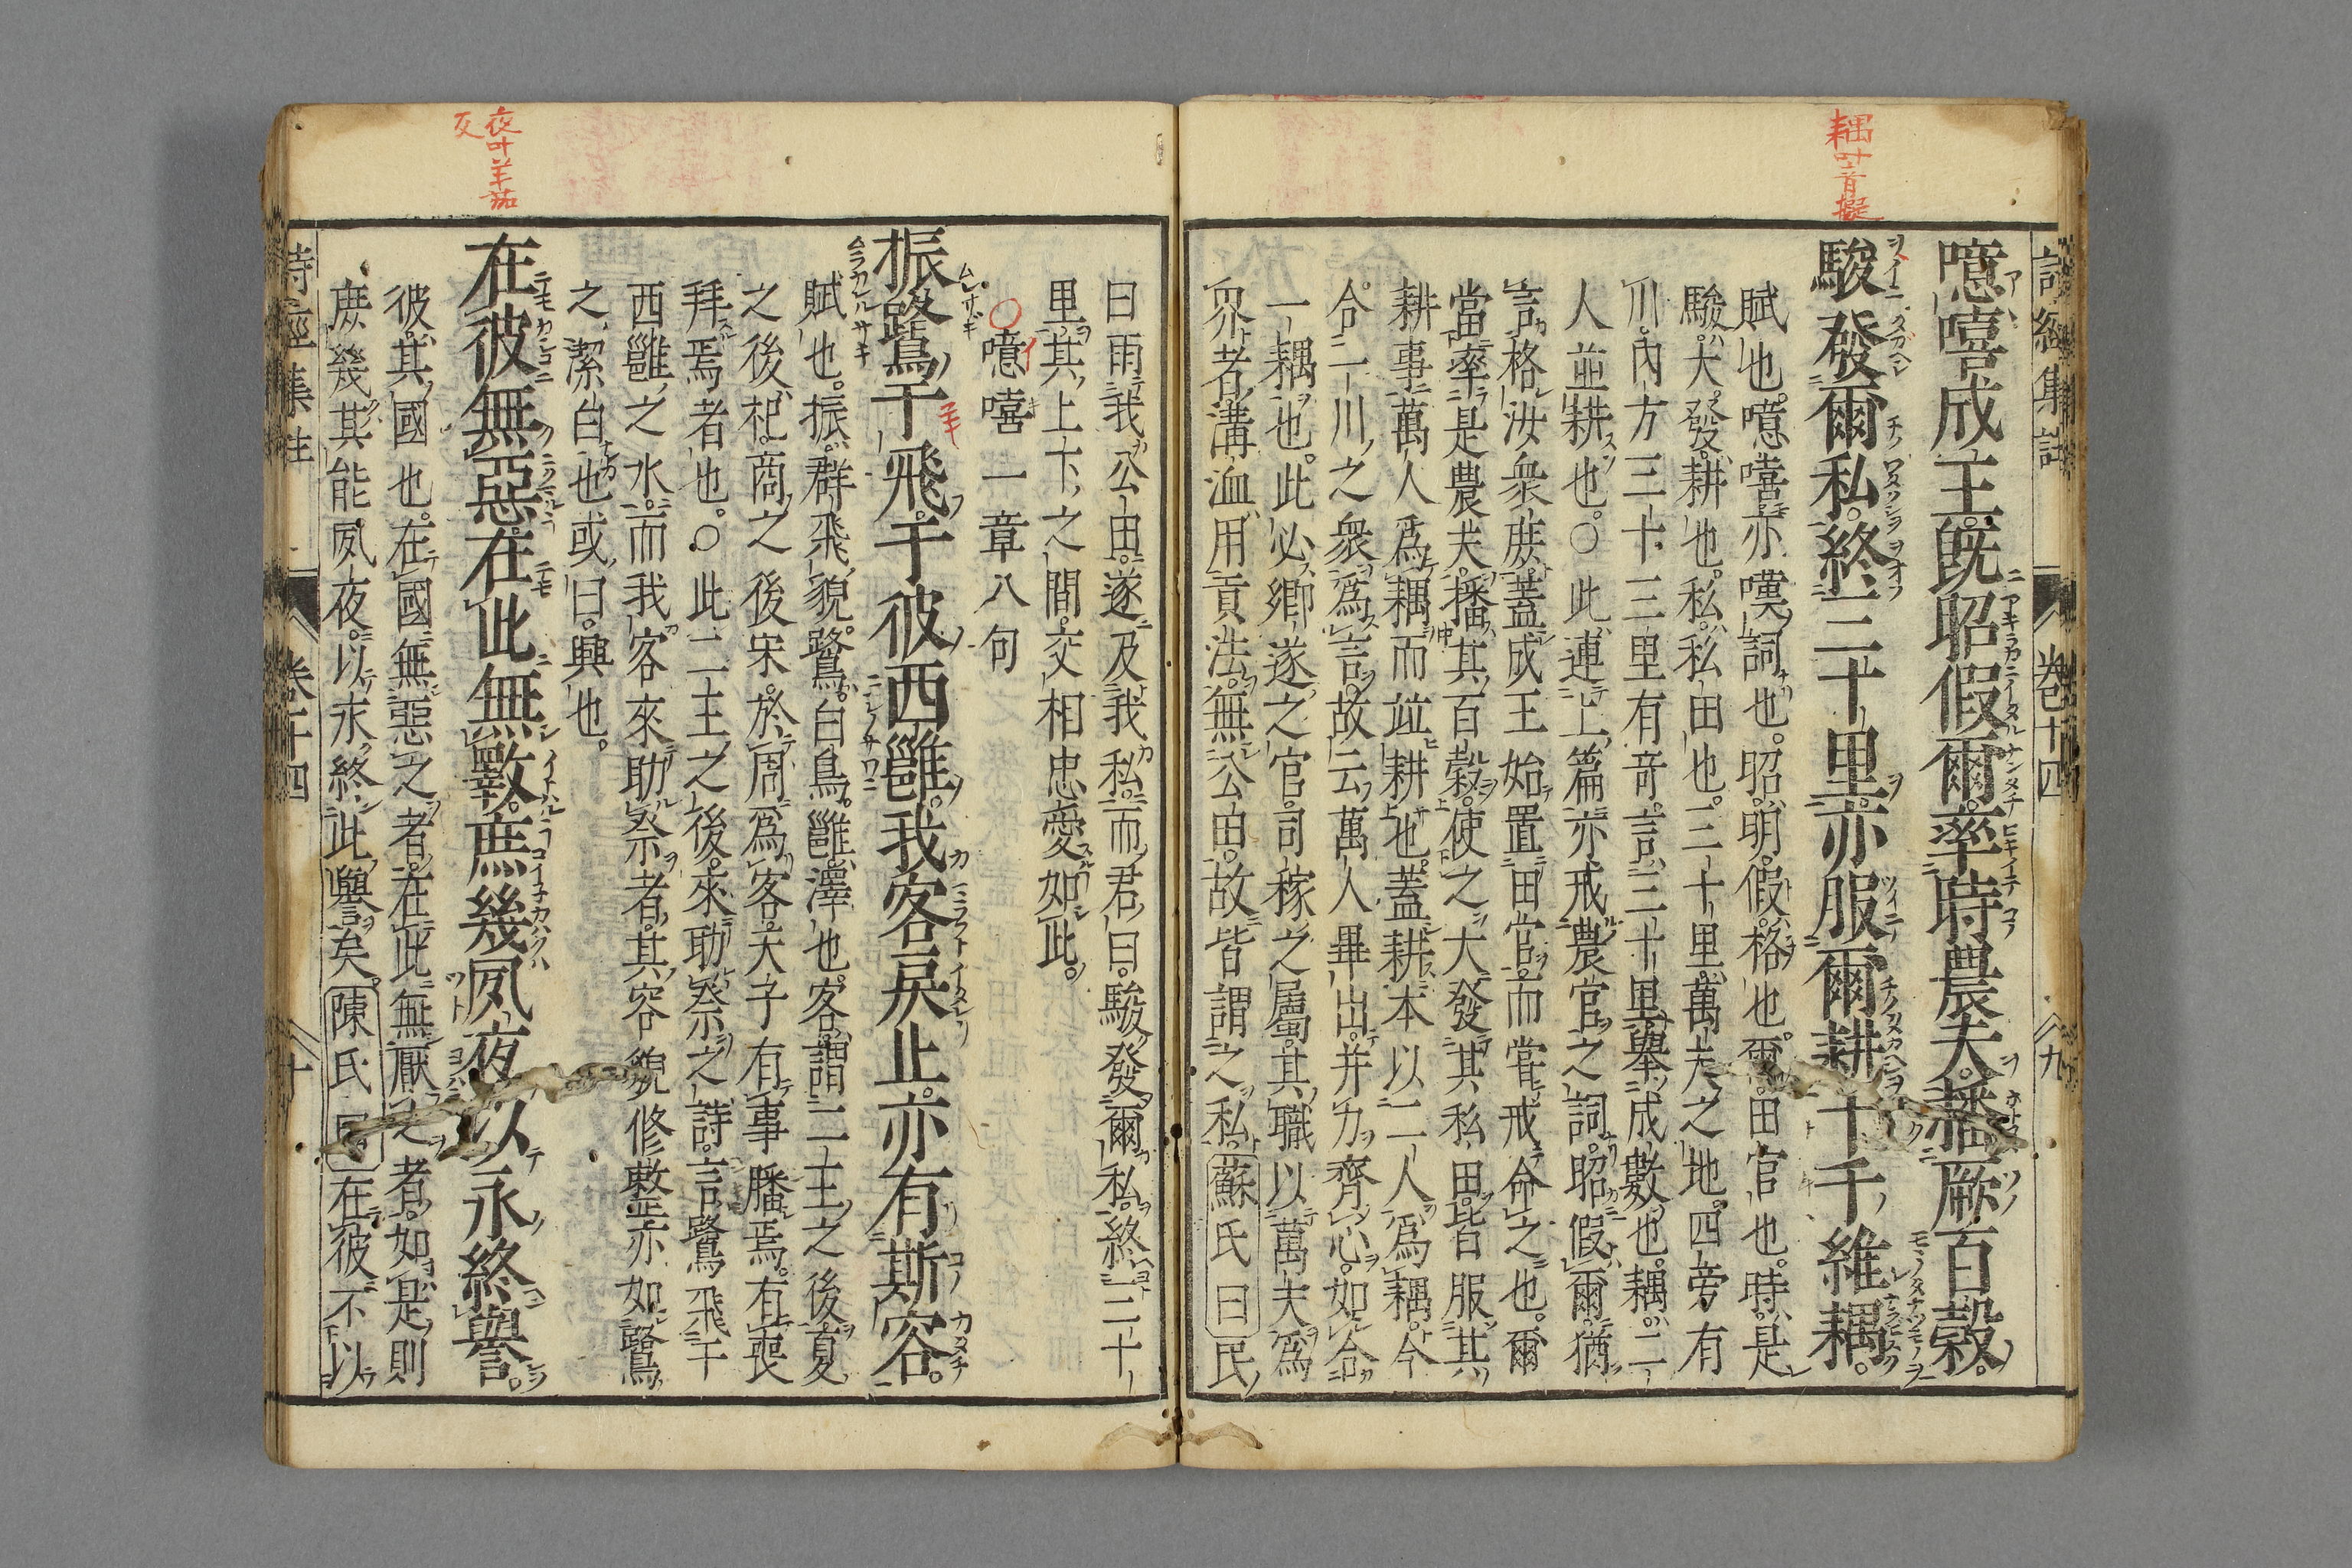 詩經集註 卷十四 九
耦叶音擬
噫嘻成王既昭假爾率時農夫播厥百穀
駿發爾私終三十里亦服爾耕十千維耦
賦也噫嘻亦嘆詞也昭明假格也爾田官也時是
駿大發耕也私私田也三十里萬夫之地四旁有
川內方三十三里有奇言三十里舉成數也耦二
人並耕也○此連上篇亦戒農官之詞昭假爾猶
言格汝衆庶蓋成王始置田官而嘗戒命之也爾
當率是農夫播其百穀使之大發其私田皆服其
耕事萬人爲耦而並耕也蓋耕本以二人爲耦今
合一川之衆爲言故云萬人畢出并力齊心如合
一耦也此必鄉遂之官司稼之屬其職以萬夫爲
界者溝洫用貢法無公田故皆謂之私蘇氏曰民
曰雨我公田遂及我私而君曰駿發爾私終三十
里其上下之間交相忠愛如此
○噫嘻一章八句
振鷺于飛于彼西雝我客戾止亦有斯容
賦也振群飛貌鷺白鳥雝澤也客謂二王之後夏
之後杞商之後宋於周爲客天子有事膰焉有喪
拜焉者也○此二王之後來助祭之詩言鷺飛于
西雝之水而我客來助祭者其容貌修整亦如鷺
之潔白也或曰興也
夜叶羊茹
反
在彼無惡在此無斁庶幾夙夜以永終譽
彼其國也在國無惡之者在此無厭之者如是則
庶幾其能夙夜以永終此譽矣陳氏曰在彼不以
詩經集註 卷十四 十